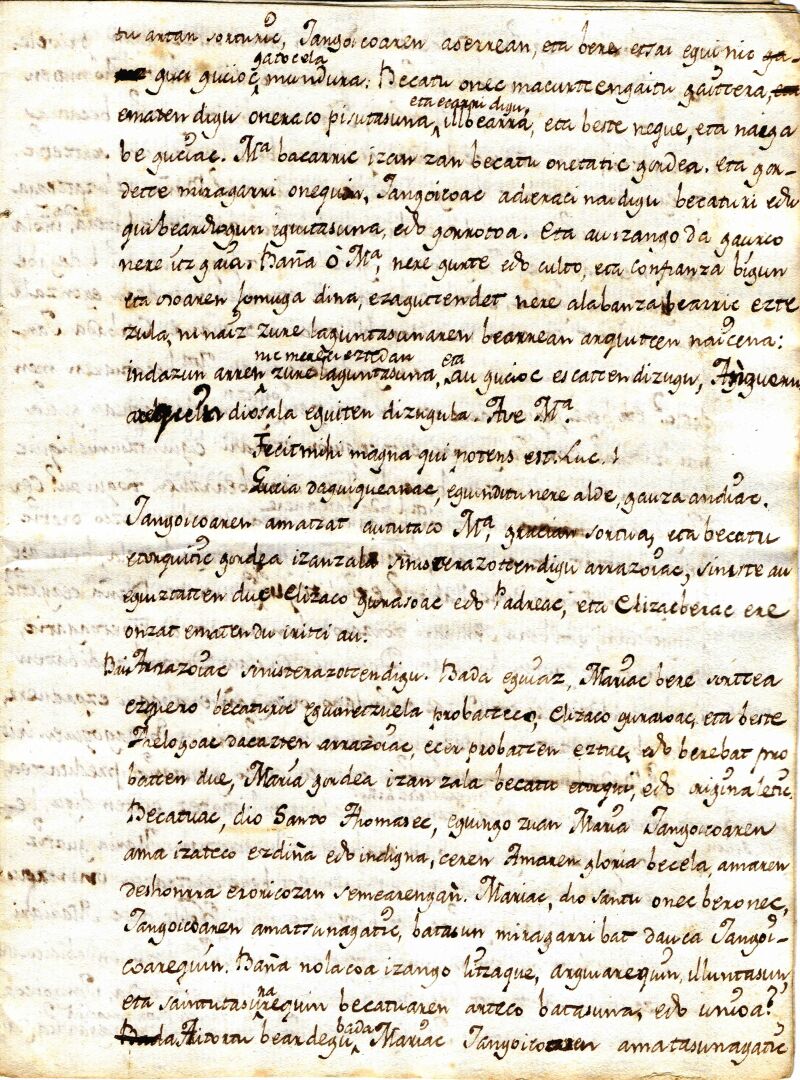 tu artan sorturic, Jangoicoaren aserrean, eta bere etsai eguinic
gatocela
guci gucioc mundura. Becatu onec macurtcengaitu gaitcera,
eta ecarri digu
ematen digu oneraco pisutasuna, illbearra, eta beste neque, eta naiga
be guciac. Mª bacarric izan zan becatu onetatic gordea. eta gor-
detce miragarri onequin, Jangoicoac adieraci nai digu becaturi edu
qui beardiogun iguitasuna, edo gorrotoa. Eta au izango da gaurco
nere itz gaia. Baña ò Mª, nere gurte edo culto, eta confianza bigun
eta osoaren jomuga dina, ezagutcendet nere alabanza bearric ezte
zula, ni naiz zure laguntasunaren bearrean arquitcen naicena:
nic mereci eztedan eta
indazun arren zure laguntasuna, au gucioc escatcen dizugu, Aingueru
arequin diosala eguiten dizugula. Ave Mª.
Fecit mihi magna qui potens est. Luc. 1
Gucia daguiqueanac, eguin ditu nere alde, gauza andiac.
Jangoicoaren amatzat aututaco Mª, gracian sortua, eta becatu
etorquitic gordea izanzala sinisterazotcendigu arrazoiac, siniste au
eguiztatcen due Elizaco gurasoac edo Padreac, eta Elizacberac ere
onzat ematen du iritci au.
Arrazoiac sinisterazotcendigu. Bada eguiaz, Mariac bere sortcea
ezquero becaturic eguin etzuela probatceco, Elizaco gurasoac, eta beste
Theologoac dacazten arrazoiac, ecer probatcen eztue, edo berebat pro
batcen due, Maria gordea izan zala becatu etorqui, edo originaletic.
Becatuac, dio Santo Thomasec, eguingo zuan Maria Jangoicoaren
ama izateco ezdiña edo indigna, ceren Amaren gloria becela, amaren
deshonrra erorico zan semearengan. Mariac, dio santu onec beronec,
Jangoicoaren amatasunagatic, batasun miragarri bat dauca Jangoi-
coarequin. Baña nolacoa izango litzaque, arguiarequin illuntasun,
na
eta saintutasunrequin becatuaren arteco batasuna, edo unioa?
bada
Aitortu beardegu, Mariac Jangoicoaren amatasunagatic